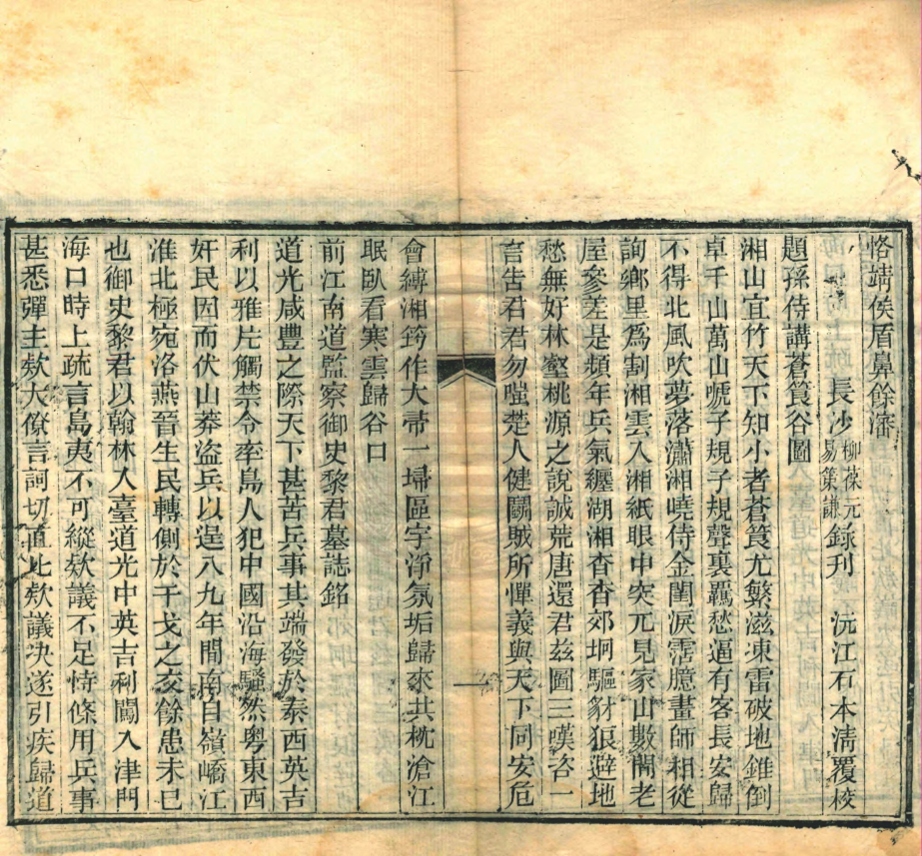 恪靖侯盾鼻餘瀋
長沙柳葆元易策謙錄刊　沅江石本淸覆校
題孫侍講蒼筤谷圖
湘山宜竹天下知小者蒼筤尤繁滋凍雷破地錐倒
卓千山萬山啼子規子規聲裏羈愁逼有客長安歸
不得北風吹夢落瀟湘曉侍金閨淚霑臆畫師相從
詢鄉里爲割湘雲入湘紙眼中突兀見家山數閒老
屋參差是頻年兵氣纏湖湘杳杳郊坰驅豺狼避地
愁無好林壑桃源之說誠荒唐還君茲圖三嘆咨一
言告君君勿嗤楚人健鬭賊所憚義與天下同安危
一
會縛湘筠作大帚一埽區宇淨氛垢歸來共枕滄江
眠臥看寒雲歸谷口
前江南道監察御史黎君墓誌銘
道光咸豐之際天下甚苦兵事其端發於泰西英吉
利以雅片觸禁令率島人犯中國沿海騷然粵東西
奸民因而伏山莽盜兵以逞八九年間南自嶺嶠江
淮北極宛洛燕晉生民轉側於干戈之交餘患未已
也御史黎君以翰林入臺道光中英吉利闖入津門
海口時上疏言島夷不可縱欵議不足恃條用兵事
甚悉彈主欵大僚言詞切直比欵議決遂引疾歸道